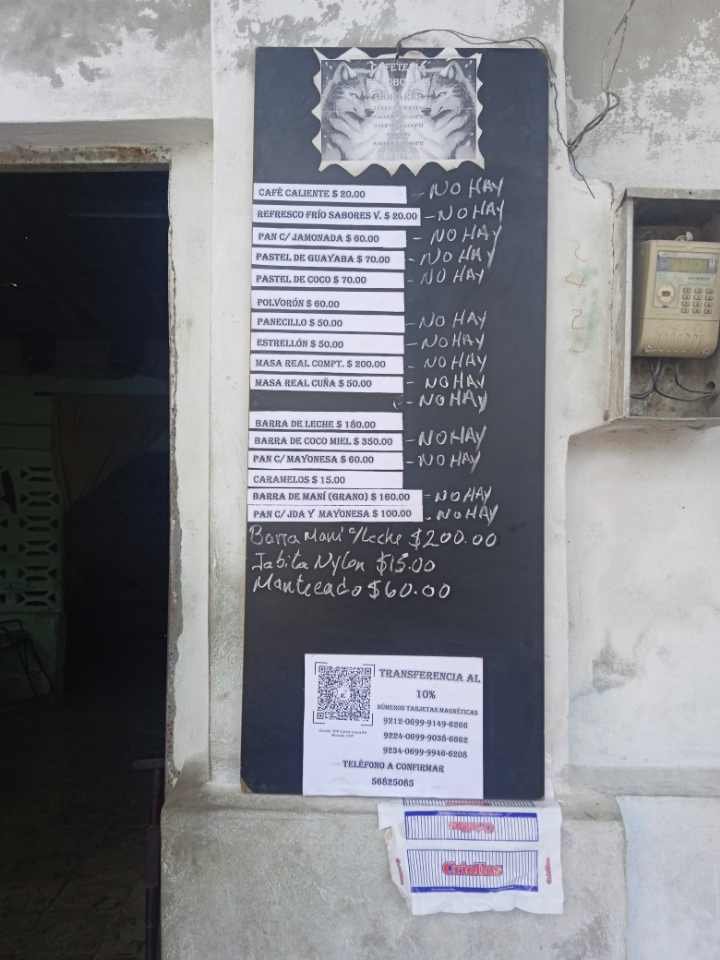 CAFÉ CALIENTE $ 20.00 - NO HAY
REFRESCO FRÍO SABORES V. $ 20.00 - NO HAY
PAN C/ JAMONADA $ 60.00 - NO HAY
PASTEL DE GUAYABA $ 70.00 - NO HAY
PASTEL DE COCO $ 70.00 - NO HAY
POLVORÓN $ 60.00
PANECILLO $ 50.00 - NO HAY
ESTRELLÓN $ 50.00 - NO HAY
MASA REAL COMPT. $ 200.00 - NO HAY
MASA REAL CUÑA $ 50.00 - NO HAY
- NO HAY
BARRA DE LECHE $ 180.00
BARRA DE COCO MIEL $ 350.00 - NO HAY
PAN C/ MAYONESA $ 60.00 - NO HAY
CARAMELOS $ 15.00
BARRA DE MANÍ (GRANO) $ 160.00 - NO HAY
PAN C/ JDA Y MAYONESA $ 100.00 - NO HAY
Barra Maní c/Leche $200.00
Jabita Nylon $15.00
Mantecado $60.00
TRANSFERENCIA AL
10%
NÚMEROS TARJETAS MAGNÉTICAS
9212-0699-9149-6266
9224-0699-9038-6862
9234-0699-9946-6208
TELÉFONO A CONFIRMAR
56825085